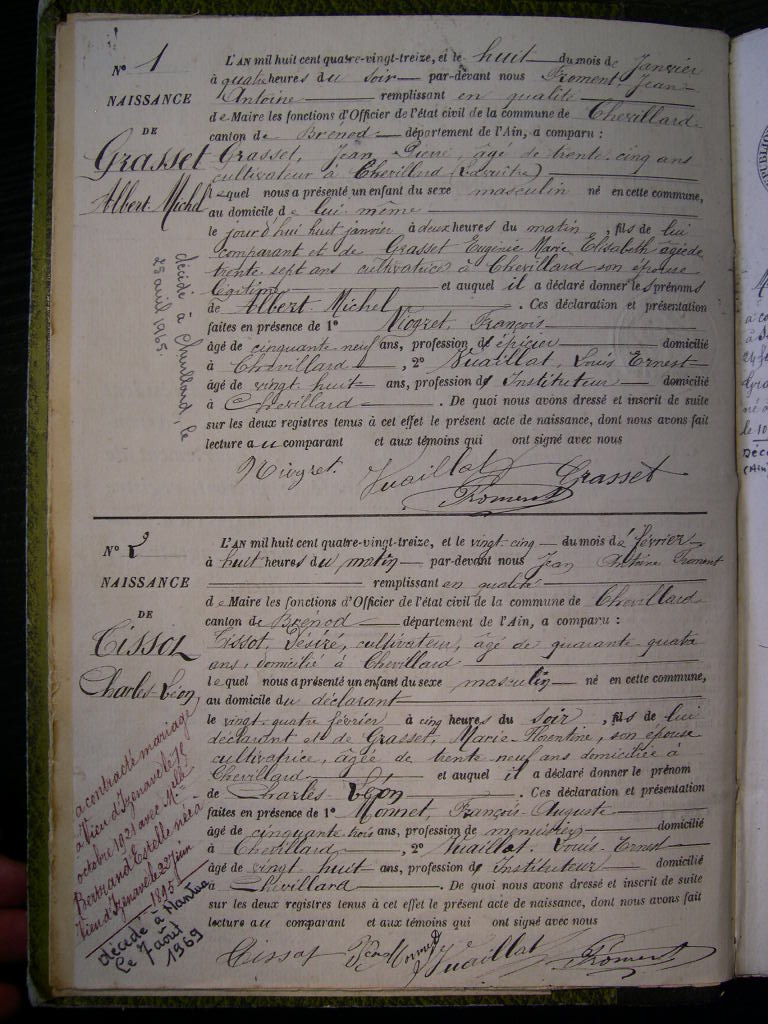 N° 1
NAISSANCE
DE
Grasset
Albert Michel
décédé à Chevillard, le
23 avril 1965.
L'AN mil huit cent quatre-vingt-treize, et le huit du mois de Janvier
à quatre heures du soir par-devant nous Froment Jean
Antoine remplissant en qualité
de Maire les fonctions d'Officier de l'état civil de la commune de Chevillard
canton de Brénod département de l'Ain, a comparu :
Grasset, Jean Pierre, âgé de trente-cinq ans
cultivateur à Chevillard
lequel nous a présenté un enfant du sexe masculin né en cette commune,
au domicile de lui même
le jourd'hui huit janvier à deux heures du matin, fils de lui
comparant et de Grasset Eugénie Marie Elisabeth âgée de
trente sept ans cultivatrice à Chevillard son épouse
légitime et auquel il a déclaré donner les prénoms
de Albert Michel. Ces déclaration et présentation
faites en présence de 1° Niogret, François
âgé de cinquante neuf ans, profession d'épicier domicilié
à Chevillard, 2° Vuaillat, Louis Ernest
âgé de vingt huit ans, profession d'Instituteur domicilié
à Chevillard. De quoi nous avons dressé et inscrit de suite
sur les deux registres tenus à cet effet le présent acte de naissance, dont nous avons fait
lecture au comparant et aux témoins qui ont signé avec nous
Niogret. Vuaillat Grasset
Froment
N° 2
NAISSANCE
DE
Tissot
Charles Léon
a contracté mariage
à Vieu d'Izenave le 15
octobre 1921 avec Mlle
Bertrand Estelle née à
Vieu d'Izenave le 22 juin
1895
décédé à Nantua
le 7 août
1969
L'AN mil huit cent quatre-vingt-treize, et le vingt-cinq du mois de février
à huit heures du matin par-devant nous Jean Antoine Froment
remplissant en qualité
de Maire les fonctions d'Officier de l'état civil de la commune de Chevillard
canton de Brénod département de l'Ain, a comparu :
Tissot, Désiré, cultivateur, âgé de quarante quatre
ans, domicilié à Chevillard
lequel nous a présenté un enfant du sexe masculin né en cette commune,
au domicile du déclarant
le vingt-quatre février à cinq heures du soir, fils de lui
déclarant et de Grasset, Marie-Florentine, son épouse
cultivatrice, âgée de trente neuf ans domiciliée à
Chevillard et auquel il a déclaré donner le prénom
de Charles Léon. Ces déclaration et présentation
faites en présence de 1° Monnet, François-Auguste
âgé de cinquante trois ans, profession de menuisier domicilié
à Chevillard, 2° Vuaillat, Louis-Ernest
âgé de vingt huit ans, profession d'Instituteur domicilié
à Chevillard. De quoi nous avons dressé et inscrit de suite
sur les deux registres tenus à cet effet le présent acte de naissance, dont nous avons fait
lecture au comparant et aux témoins qui ont signé avec nous
Tissot Monnet Vuaillat Froment